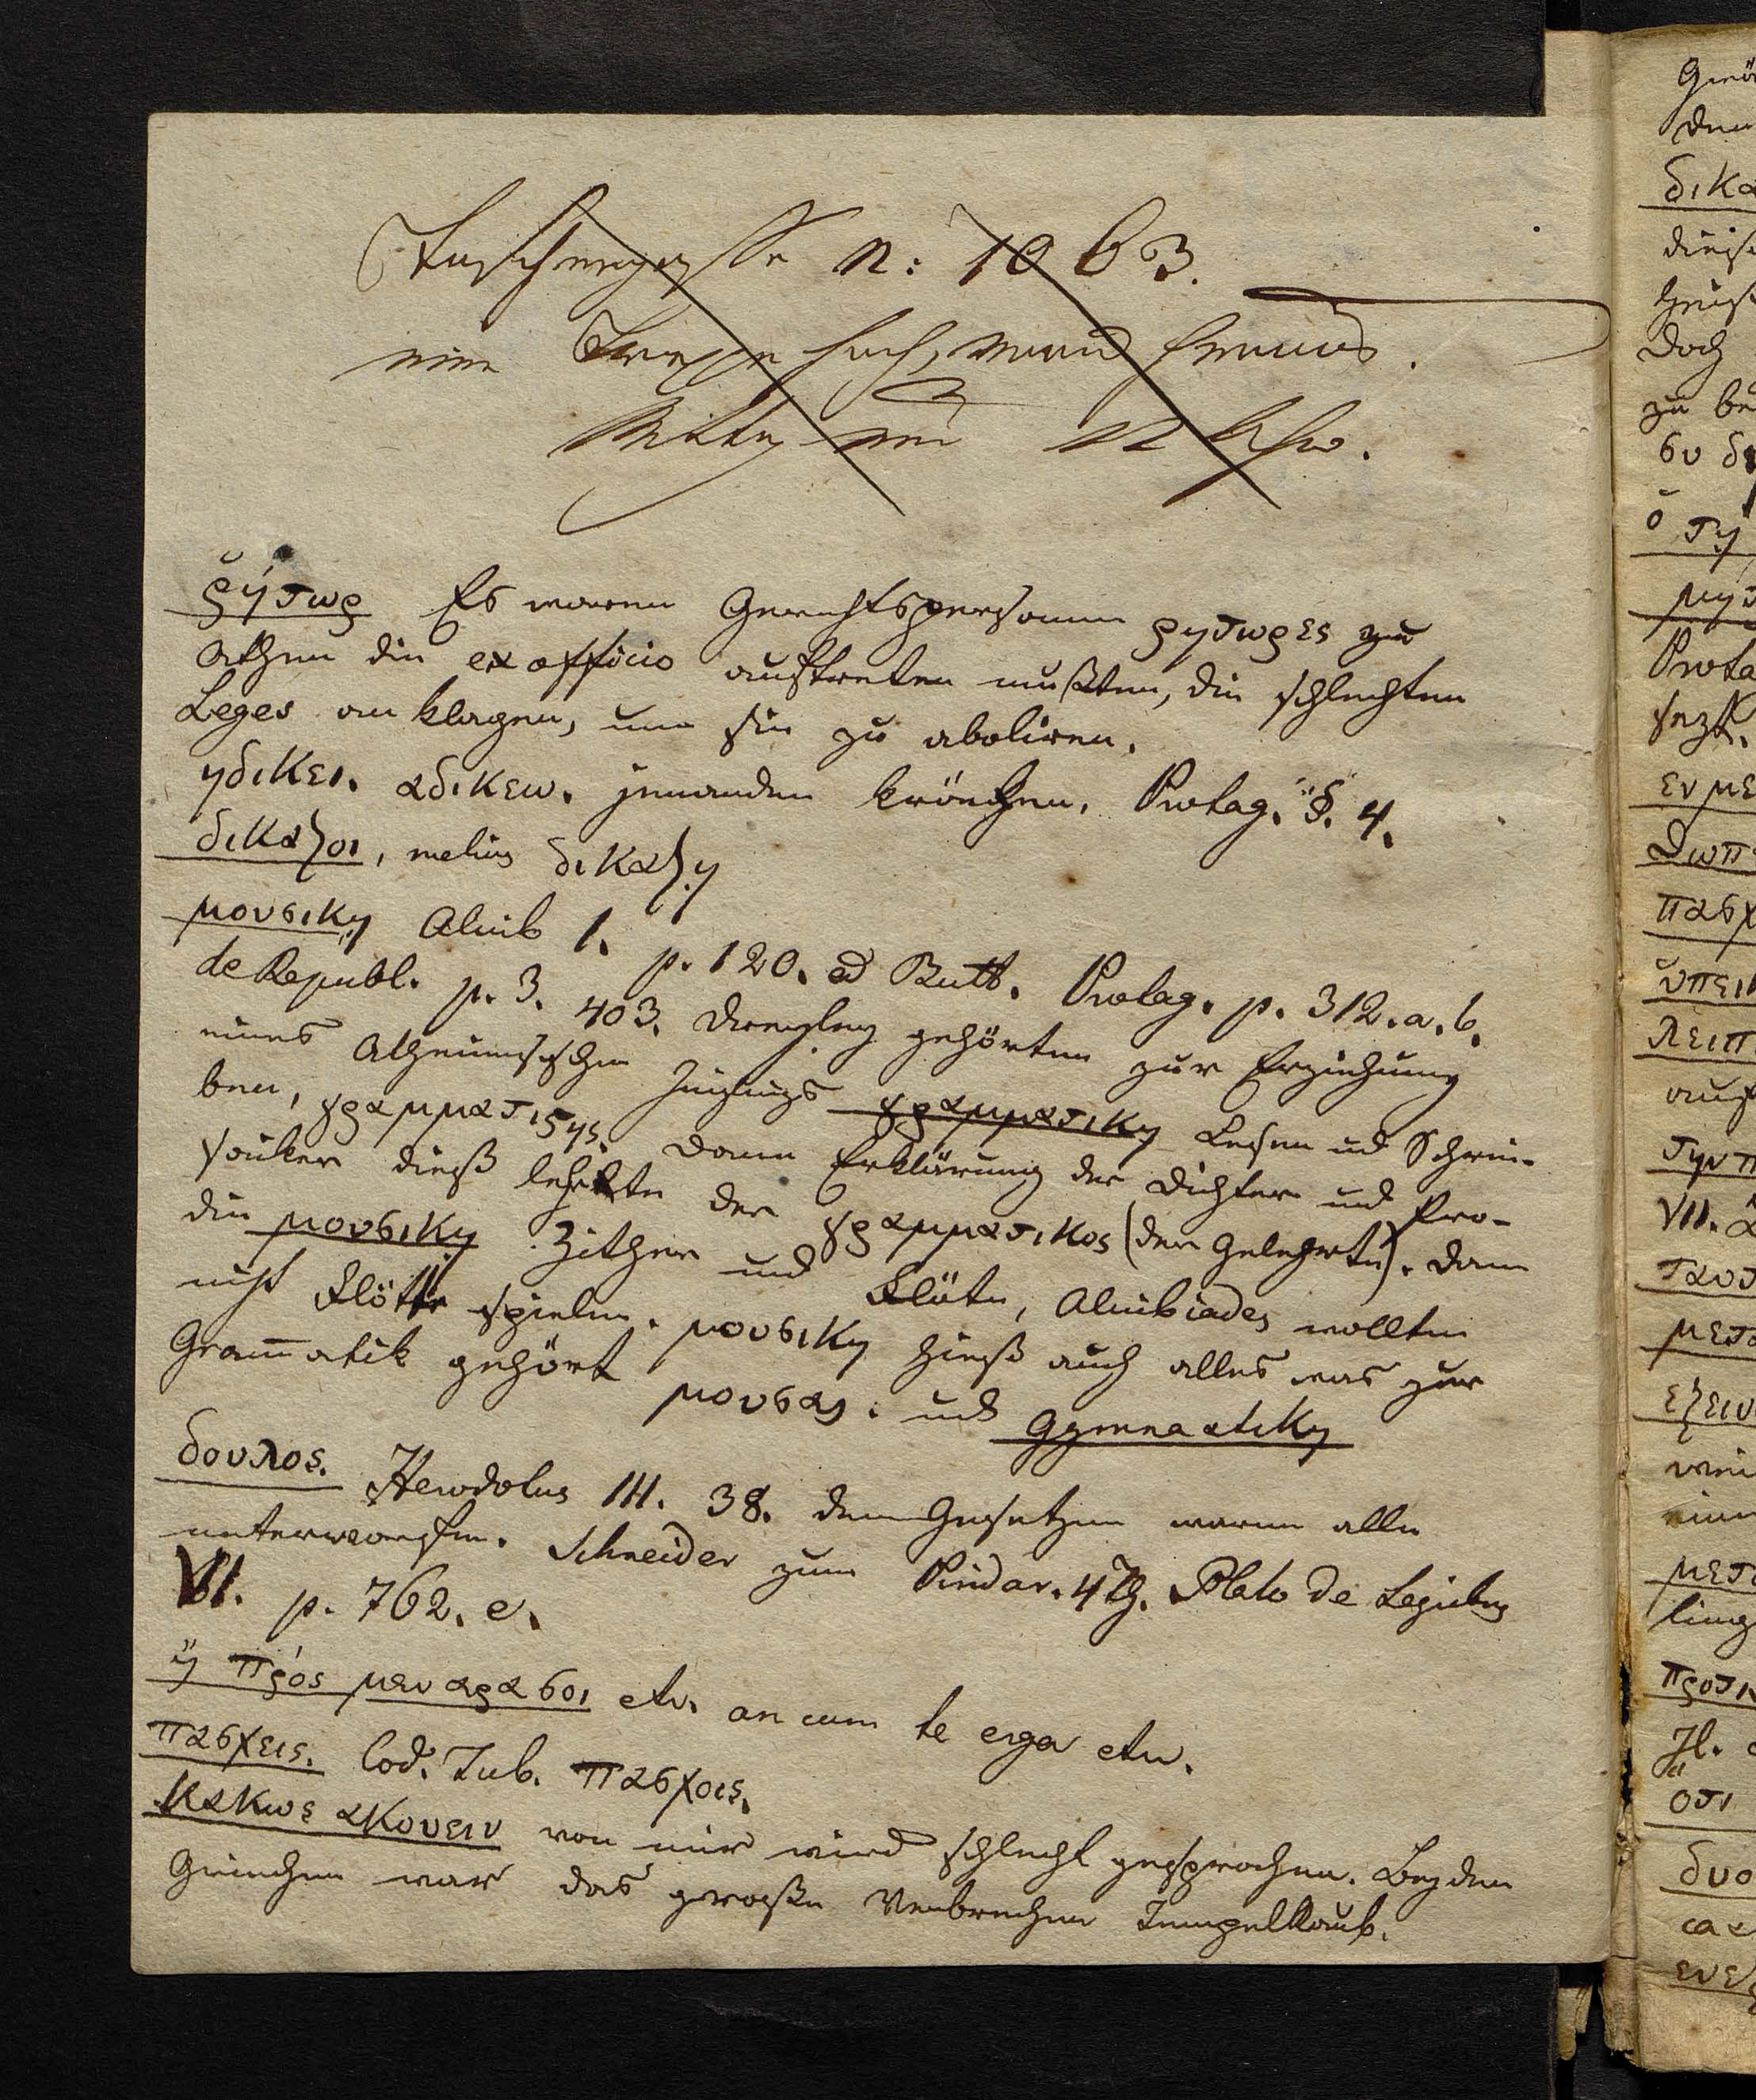 n: 1063.
eine Treppe hoch,
Mittag um 12 Uhr.
ῥήτωρ Es waren Gerichtspersonen ρητωρες zu
Athen die ex officio auftreten mußten, die schlechten
Leges anklagen, um sie zu aboliren.
ηδικει. αδικεω. jemanden kränchen. Protag. §. 4.
δικαζοι, melius δικαζῃ
μουσικῃ Alcib 1. p. 120. ed Butt. Protag. p. 312. a. b.
de Republ. p. 3. 403. Dreyerley gehörten zur Erziehung
eines Atheniensischen Jünglings γραμματικη Lesen und Schrei-
ben, γραμματιστης. Dann Erklärung der Dichter und Pro-
saiker dieß lehrte der γραμματικος (der Gelehrte). Dann
die μουσικη Zither und Flöte, Alcibiades wollte
nicht Flöte spielen. μουσικη hieß auch alles was zur
Grammatik gehört μουσαι. und Gymnastikη
δουλος. Herodotus III. 38. dem Gesetzen waren alle
unterworfen. Schneider zum Pindar. 47. Plato de Legibus
VI. p. 762. e.
ἢ πρός μεν αρα σοι etc. an cum te erga etc.
πασχεις. Cod. Tub. πασχοις.
κακως ακουειν von mir wird schlecht gesprochen. Bey den
Griechen war das große Verbrechen Tempelraub.